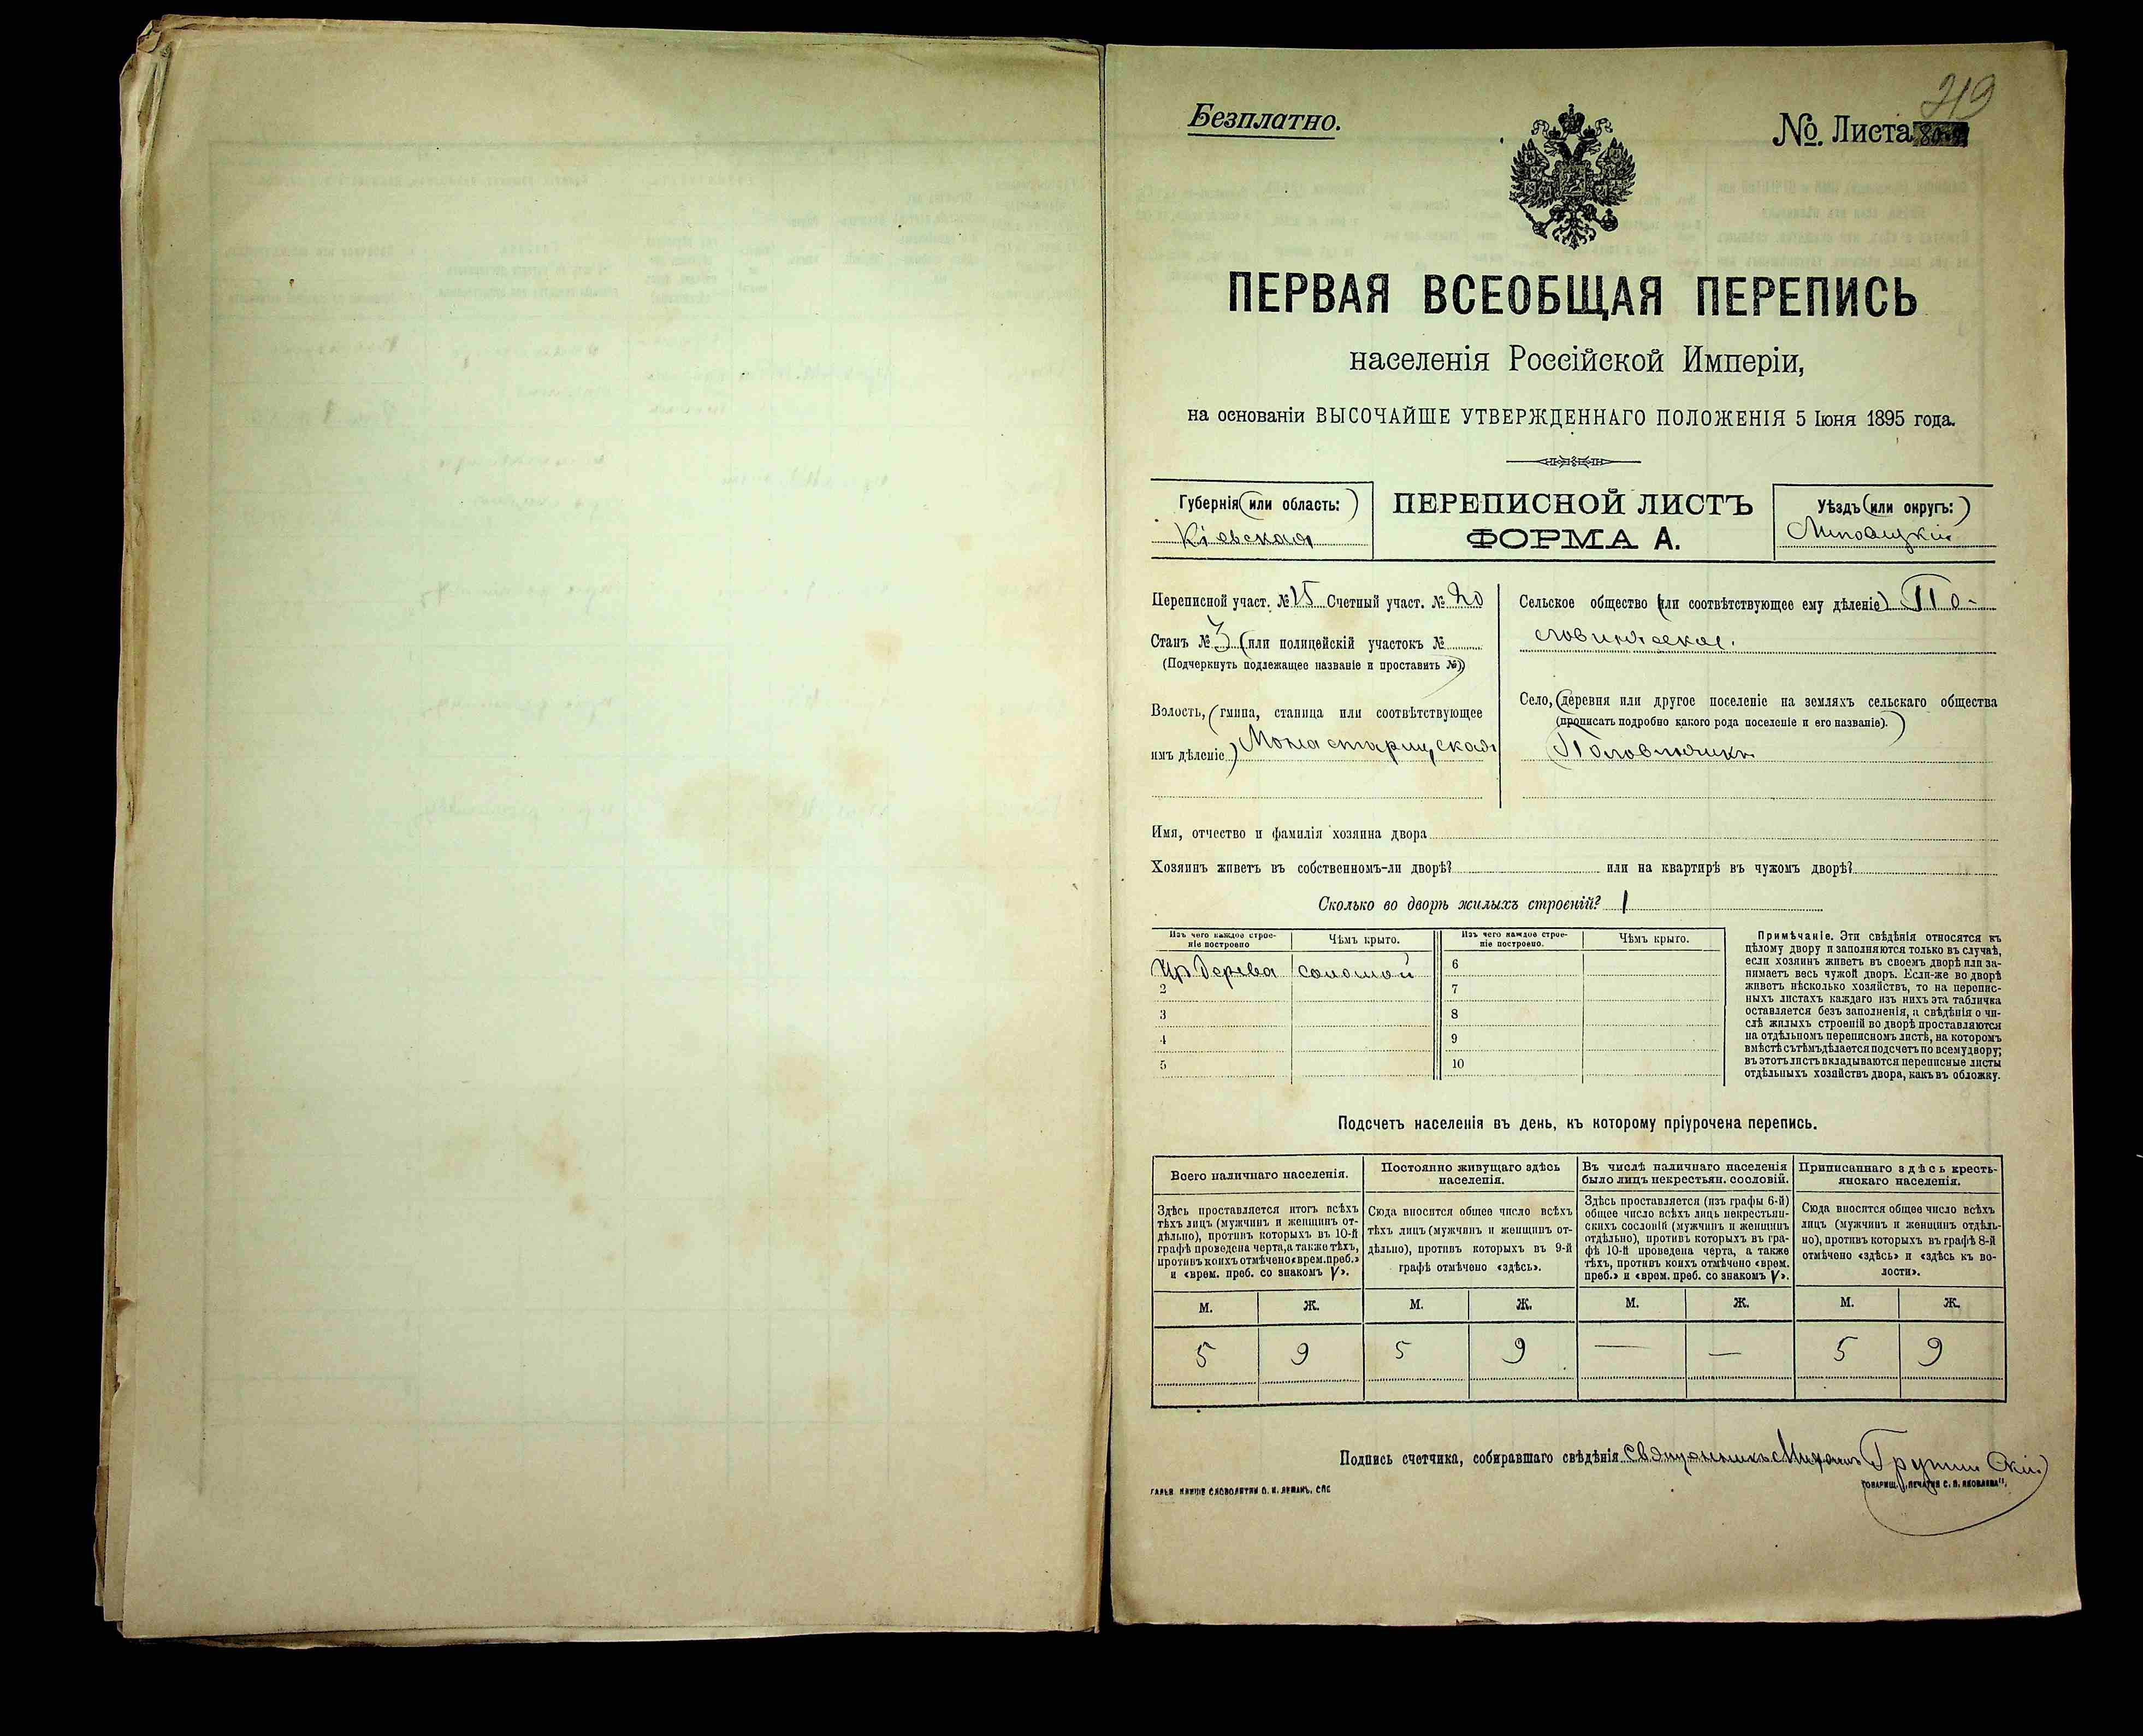 219
Безплатно.
№. Листа
ПЕРВАЯ ВСЕОБЩАЯ ПЕРЕПИСЬ
населенія Россійской Имперіи,
на основаніи ВЫСОЧАЙШЕ УТВЕРЖДЕННАГО ПОЛОЖЕНІЯ 5 Іюня 1895 года.
Губернія (или область:)
Кіевская
ПЕРЕПИСНОЙ ЛИСТЪ
ФОРМА А.
Уѣздъ (или округъ:)
Липовецкій
Переписной участ. № 15 Счетный участ. № 20
Станъ № 3 (или полицейскій участокъ №
(Подчеркнуть подлежащее названіе и проставить №))
Волость, (гмина, станица или соотвѣтствующее
имъ дѣленіе) Монастырищская
Сельское общество (или соотвѣтствующее ему дѣленіе) По-
ловинчское.
Село, (деревня или другое поселеніе на земляхъ сельскаго общества
(прописать подробно какого рода поселеніе и его названіе).)
Половинчикъ
Имя, отчество и фамилія хозяина двора
Хозяинъ живетъ въ собственномъ-ли дворѣ? или на квартирѣ въ чужомъ дворѣ?
Сколько во дворѣ жилыхъ строеній? 1
Изъ чего каждое строе-
ніе построено
Чѣмъ крыто.
Изъ чего каждое строе-
ніе построено.
Чѣмъ крыто.
Изъ дерева соломой 6
2 7
3 8
4 9
5 10
Примѣчаніе. Эти свѣдѣнія относятся къ
цѣлому двору и заполняются только въ случаѣ,
если хозяинъ живетъ въ своемъ дворѣ или за-
нимаетъ весь чужой дворъ. Если-же во дворѣ
живетъ нѣсколько хозяйствъ, то на перепис-
ныхъ листахъ каждаго изъ нихъ эта табличка
оставляется безъ заполненія, а свѣдѣнія о чи-
слѣ жилыхъ строеній во дворѣ проставляются
на отдѣльномъ переписномъ листѣ, на которомъ
вмѣстѣ съ тѣмъ дѣлается подсчетъ по всему двору;
въ этотъ листъ вкладываются переписные листы
отдѣльныхъ хозяйствъ двора, какъ въ обложку.
Подсчетъ населенія въ день, къ которому пріурочена перепись.
Всего наличнаго населенія.
Здѣсь проставляется итогъ всѣхъ
тѣхъ лицъ (мужчинъ и женщинъ от-
дѣльно), противъ которыхъ въ 10-й
графѣ проведена черта, а также тѣхъ,
противъ коихъ отмѣчено «врем. преб.»
и «врем. преб. со знакомъ V».
Постоянно живущаго здѣсь
населенія.
Сюда вносится общее число всѣхъ
тѣхъ лицъ (мужчинъ и женщинъ от-
дѣльно), противъ которыхъ въ 9-й
графѣ отмѣчено «здѣсь».
Въ числѣ наличнаго населенія
было лицъ некрестьян. сословій.
Здѣсь проставляется (изъ графы 6-й)
общее число всѣхъ лицъ некрестьян-
скихъ сословій (мужчинъ и женщинъ
отдѣльно), противъ которыхъ въ гра-
фѣ 10-й проведена черта, а также
тѣхъ, противъ коихъ отмѣчено «врем.
преб.» и «врем. преб. со знакомъ V».
Приписаннаго здѣсь кресть-
янскаго населенія.
Сюда вносится общее число всѣхъ
лицъ (мужчинъ и женщинъ отдѣль-
но), противъ которыхъ въ графѣ 8-й
отмѣчено «здѣсь» и «здѣсь въ во-
лости».
М. Ж. М. Ж. М. Ж. М. Ж.
5 9 5 9 — — 5 9
Подпись счетчика, собиравшаго свѣдѣнія Священникъ Михаилъ
ТОВАРИЩ. „ПЕЧАТНЯ С. П. ЯКОВЛЕВА“.